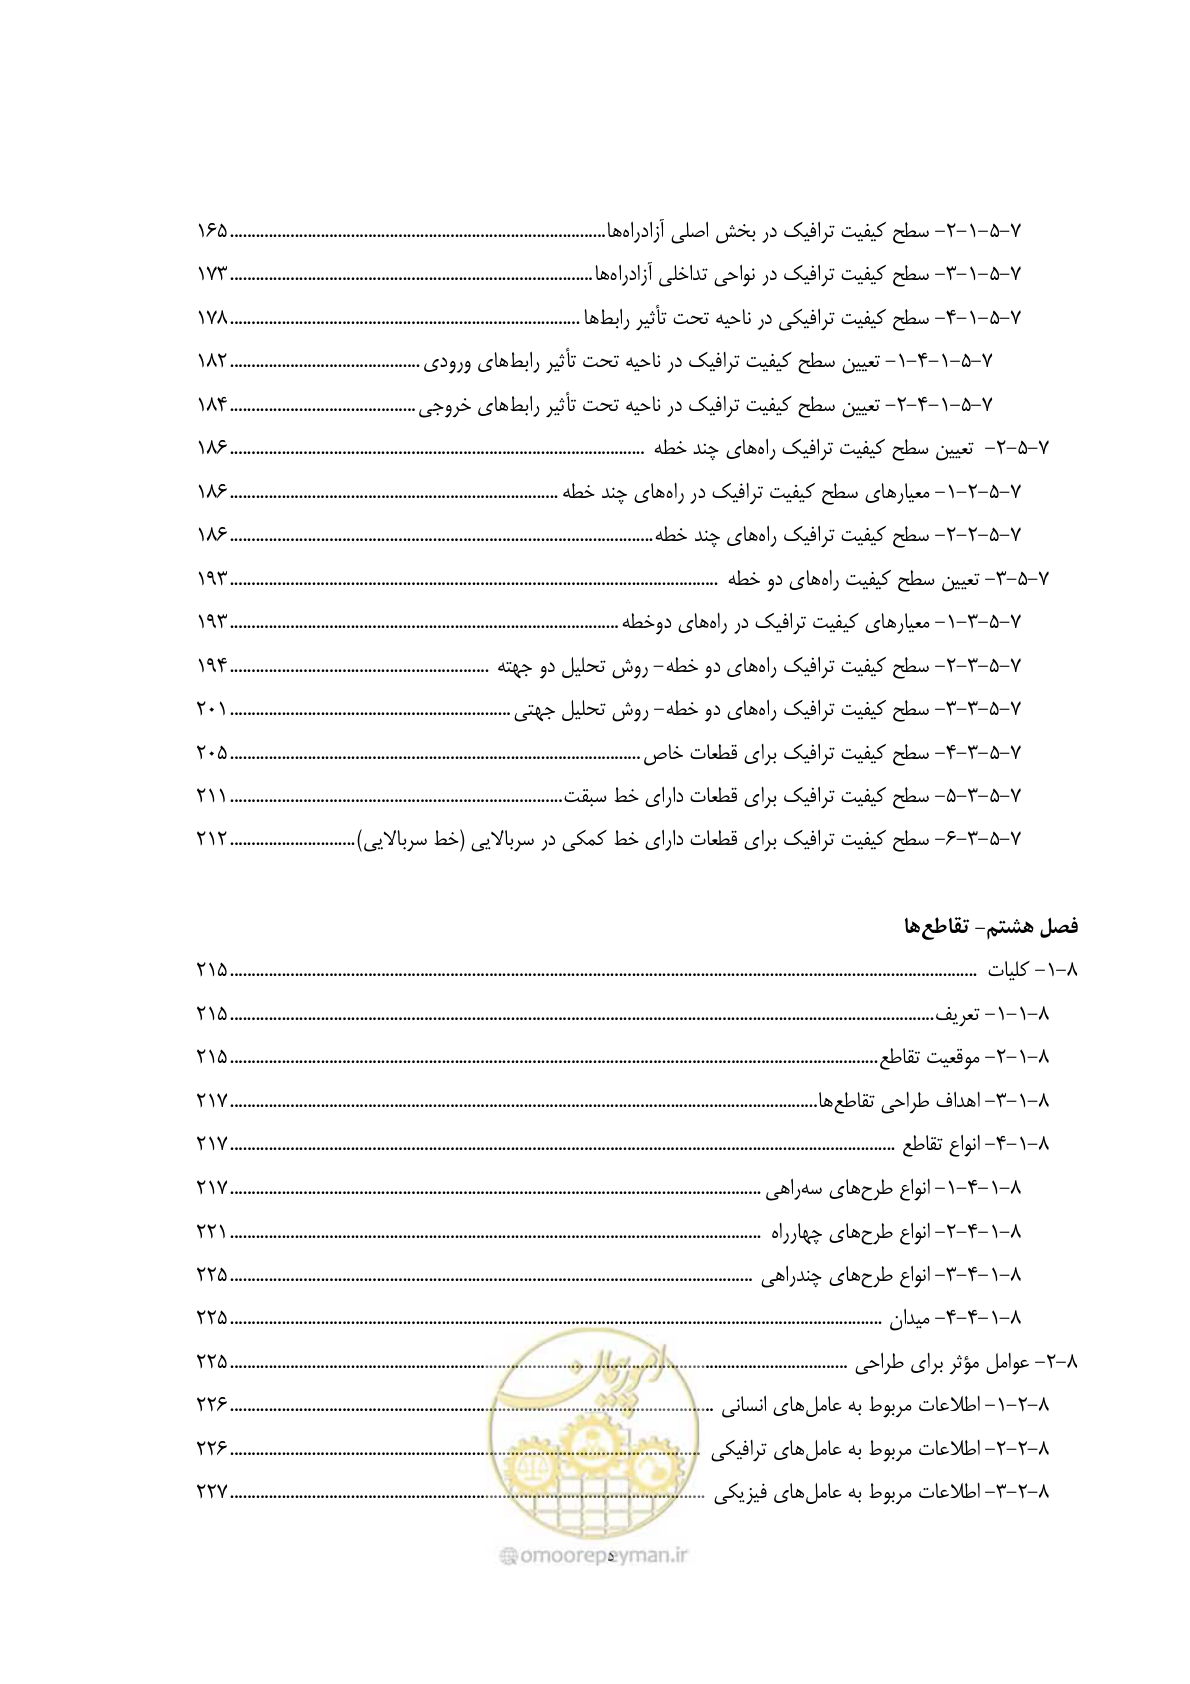 ۷-۵-۱-۲- سطح کیفیت ترافیک در بخش اصلی آزادراه‌ها........................................ ۱۶۵
۷-۵-۱-۳- سطح کیفیت ترافیک در نواحی تداخلی آزادراه‌ها........................................ ۱۷۳
۷-۵-۱-۴- سطح کیفیت ترافیکی در ناحیه تحت تأثیر رابط‌ها ........................................ ۱۷۸
۷-۵-۱-۴-۱- تعیین سطح کیفیت ترافیک در ناحیه تحت تأثیر رابط‌های ورودی ........................................ ۱۸۲
۷-۵-۱-۴-۲- تعیین سطح کیفیت ترافیک در ناحیه تحت تأثیر رابط‌های خروجی ........................................ ۱۸۴
۷-۵-۲- تعیین سطح کیفیت ترافیک راه‌های چند خطه ........................................ ۱۸۶
۷-۵-۲-۱- معیارهای سطح کیفیت ترافیک در راه‌های چند خطه ........................................ ۱۸۶
۷-۵-۲-۲- سطح کیفیت ترافیک راه‌های چند خطه........................................ ۱۸۶
۷-۵-۳- تعیین سطح کیفیت راه‌های دو خطه ........................................ ۱۹۳
۷-۵-۳-۱- معیارهای کیفیت ترافیک در راه‌های دوخطه ........................................ ۱۹۳
۷-۵-۳-۲- سطح کیفیت ترافیک راه‌های دو خطه- روش تحلیل دو جهته ........................................ ۱۹۴
۷-۵-۳-۳- سطح کیفیت ترافیک راه‌های دو خطه- روش تحلیل جهتی ........................................ ۲۰۱
۷-۵-۳-۴- سطح کیفیت ترافیک برای قطعات خاص ........................................ ۲۰۵
۷-۵-۳-۵- سطح کیفیت ترافیک برای قطعات دارای خط سبقت........................................ ۲۱۱
۷-۵-۳-۶- سطح کیفیت ترافیک برای قطعات دارای خط کمکی در سربالایی (خط سربالایی)........................................ ۲۱۲
فصل هشتم- تقاطع‌ها
۸-۱- کلیات ........................................ ۲۱۵
۸-۱-۱- تعریف........................................ ۲۱۵
۸-۱-۲- موقعیت تقاطع........................................ ۲۱۵
۸-۱-۳- اهداف طراحی تقاطع‌ها........................................ ۲۱۷
۸-۱-۴- انواع تقاطع ........................................ ۲۱۷
۸-۱-۴-۱- انواع طرح‌های سه‌راهی ........................................ ۲۱۷
۸-۱-۴-۲- انواع طرح‌های چهارراه ........................................ ۲۲۱
۸-۱-۴-۳- انواع طرح‌های چندراهی ........................................ ۲۲۵
۸-۱-۴-۴- میدان ........................................ ۲۲۵
۸-۲- عوامل مؤثر برای طراحی ........................................ ۲۲۵
امور پیمان
۸-۲-۱- اطلاعات مربوط به عامل‌های انسانی ........................................ ۲۲۶
۸-۲-۲- اطلاعات مربوط به عامل‌های ترافیکی ........................................ ۲۲۶
۸-۲-۳- اطلاعات مربوط به عامل‌های فیزیکی ........................................ ۲۲۷
@omoorepeyman.ir